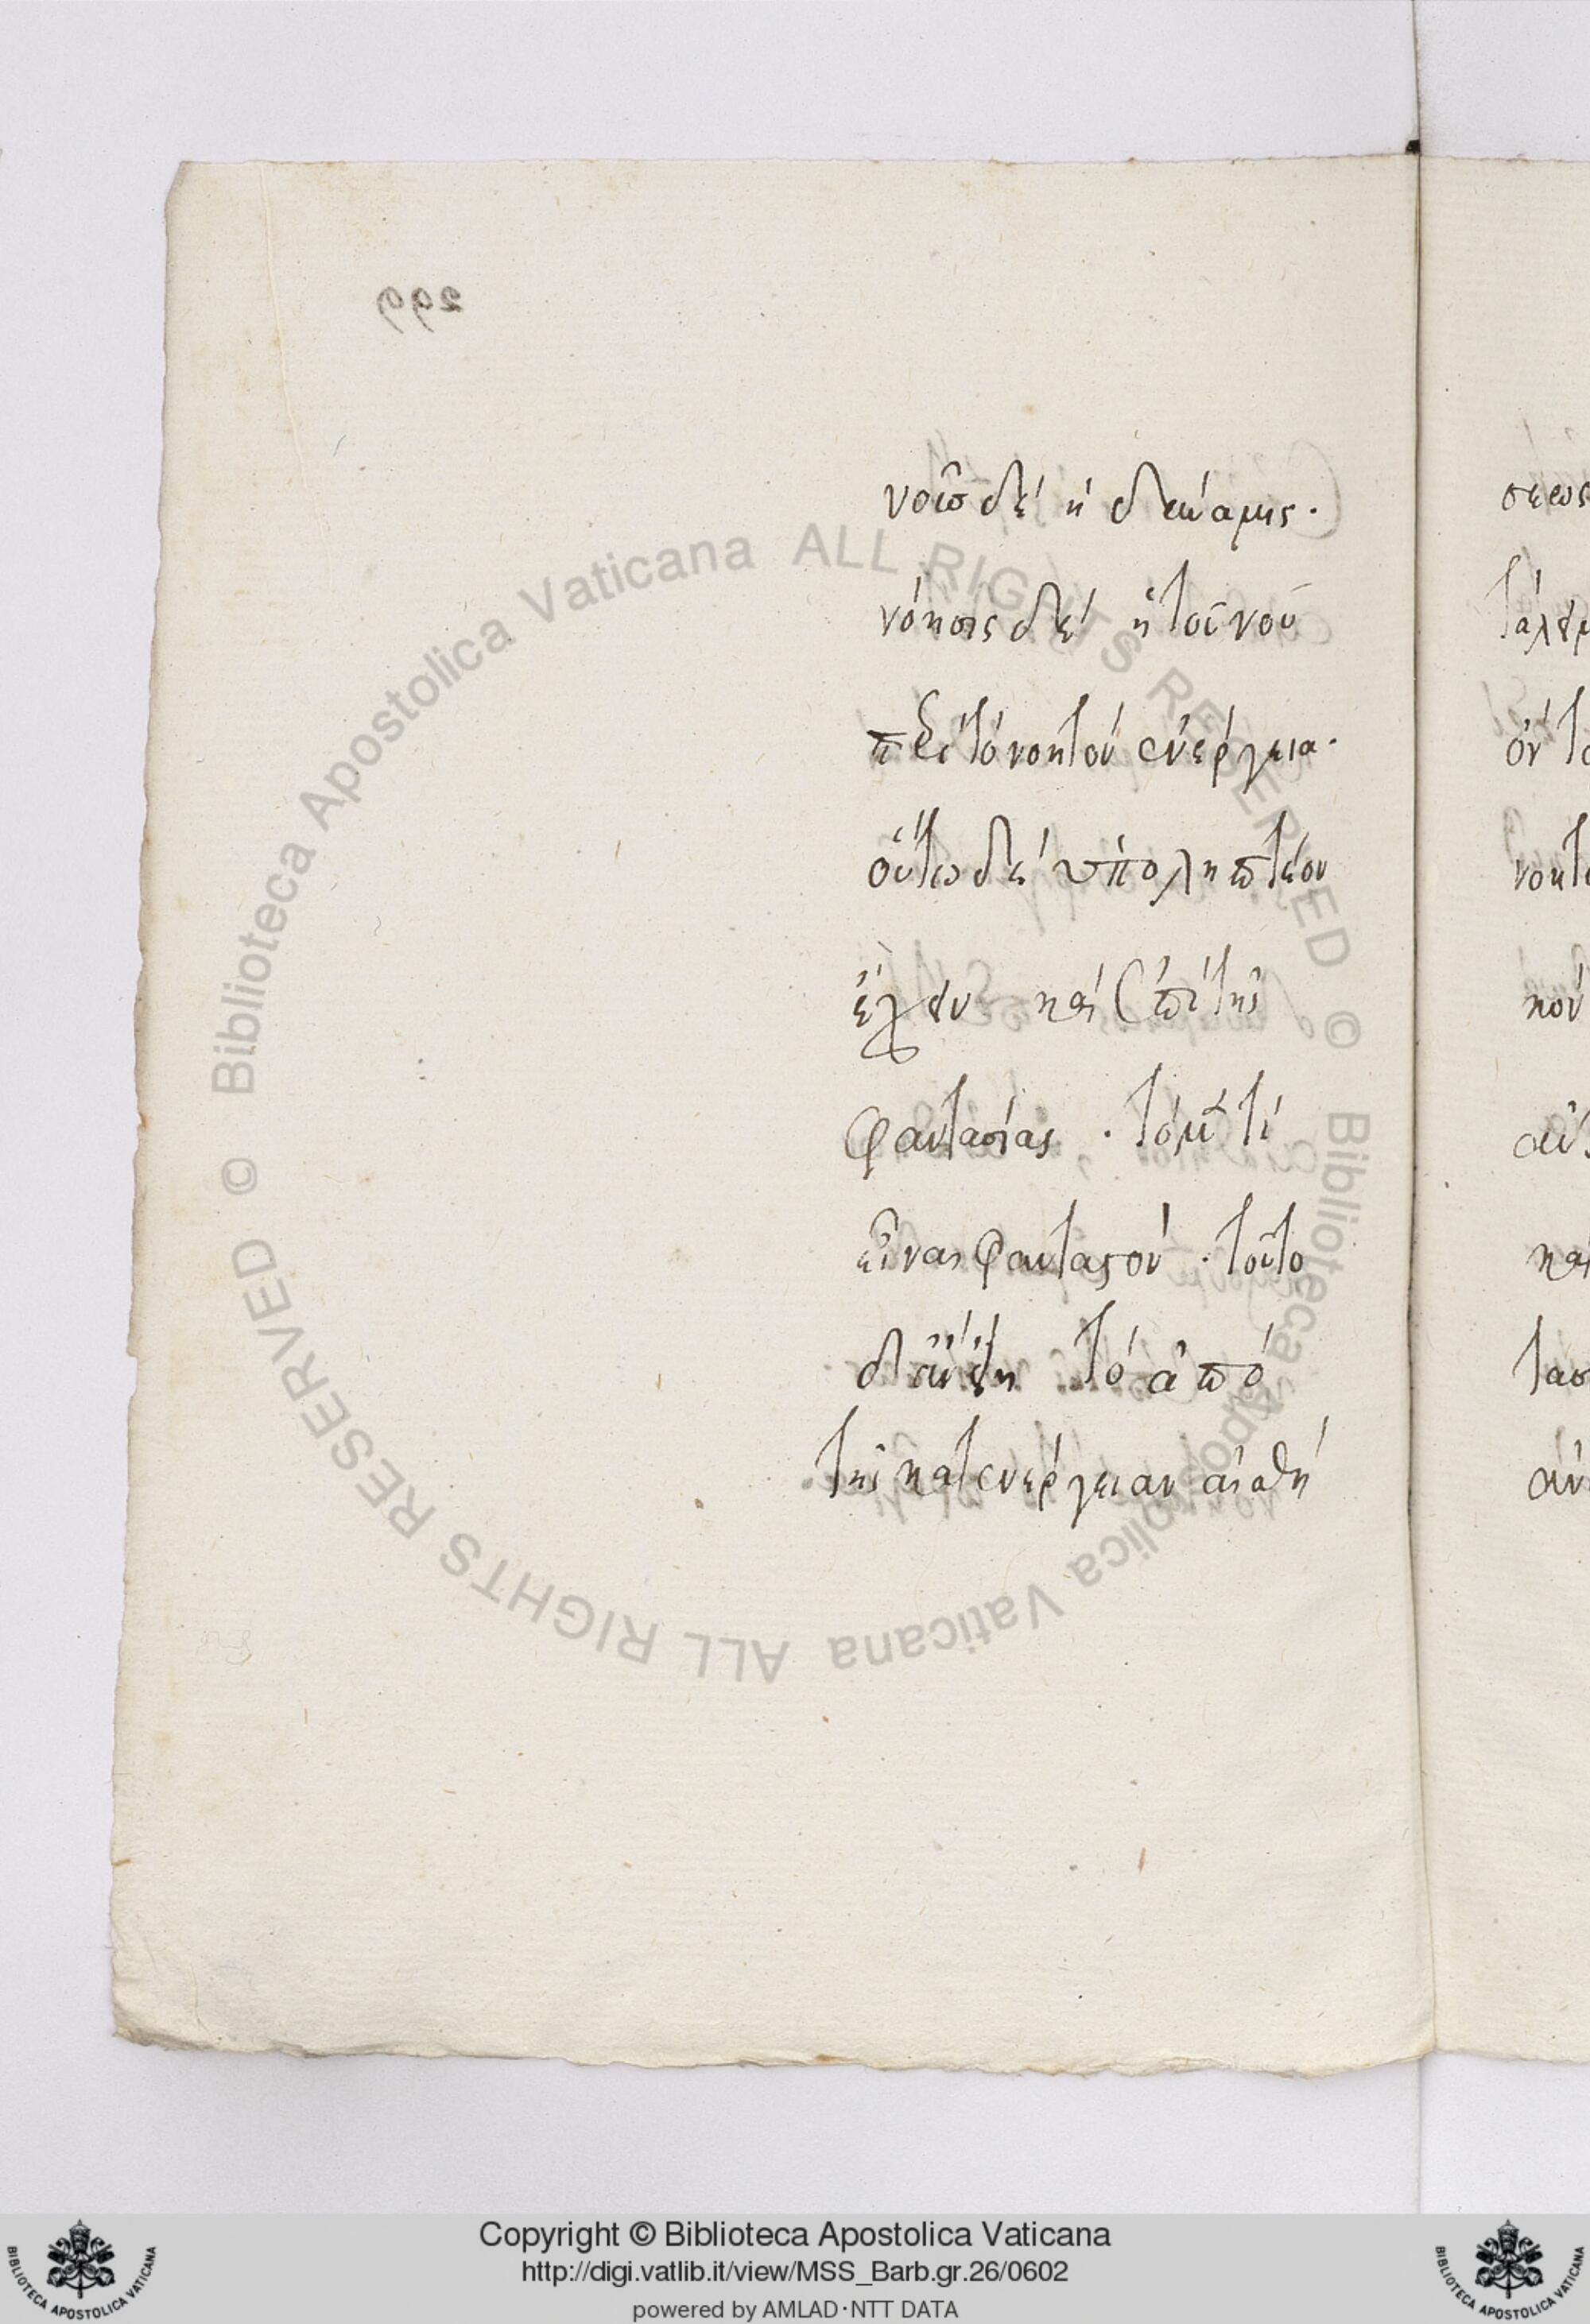 299
νοῦσ δέ ἡ δύναμις.
νόησις δέ ἡ τοῦ νοῦ
περὶ τό νοητόν ἐνέργεια.
οὕτω δέ ὑποληπτέον
ἔχειν καὶ ἐπὶ τῆς
φαντασίας. τό μὲν τί
εἶναι φανταστόν. τοῦτο
δ' ἂν εἴη τό ἀπό
τῆς κατ ἐνέργειαν αἰσθή
σεως
ὄν το
νοητ
κόν
καὶ
τασ
Biblioteca Apostolica Vaticana ALL RIGHTS RESERVED © Biblioteca Apostolica Vaticana ALL RIGHTS RESERVED ©
Copyright © Biblioteca Apostolica Vaticana
http://digi.vatlib.it/view/MSS_Barb.gr.26/0602
powered by AMLAD·NTT DATA
BIBLIOTECA APOSTOLICA VATICANA
BIBLIOTECA APOSTOLICA VATICANA